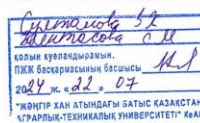 Султанова ЗК
Жентасова СМ
қолын куәландырамын.
ПЖЖ басқармасының басшысы
2024 ж. «22» 07
"ЖӘҢГІР ХАН АТЫНДАҒЫ БАТЫС ҚАЗАҚСТАН
АГРАРЛЫҚ-ТЕХНИКАЛЫҚ УНИВЕРСИТЕТІ" КеАҚ